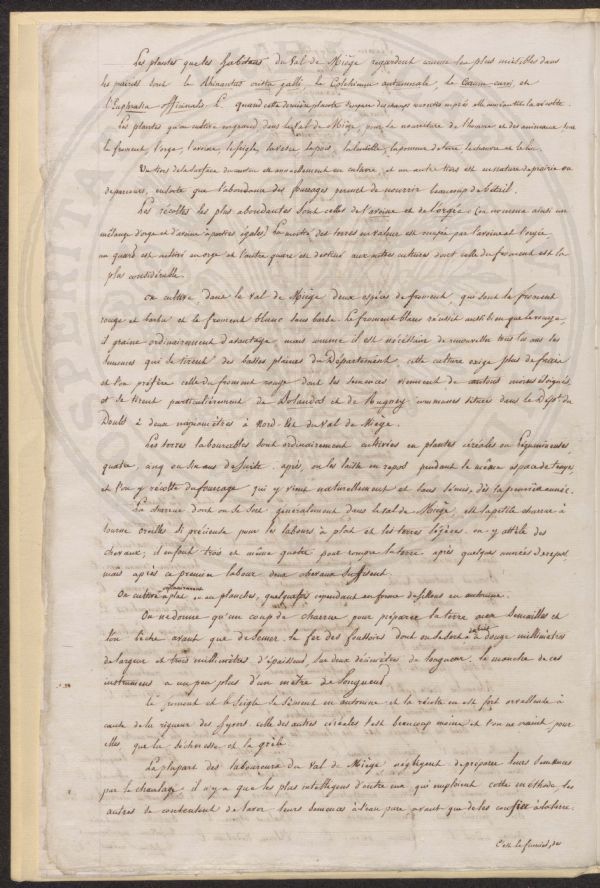 Les plantes que les habitans du Val de Miège regardent comme les plus nuisibles dans
les prairies sont le Rhinantus crista galli, le Colchicum autumnale, le Carum carvi, et
l'Euphrasia officinalis, L. quand cette dernière plante s'empare des champs ensemencés elle anéantit la récolte.
Les plantes qu'on cultive en grand dans le Val de Miège, pour la nourriture de l'homme et des animaux sont
le froment, l'orge, l'avoine, le seigle, la vesce, le pois, la lentille, la pomme de terre, le chanvre et le lin.
Un tiers de la surface du canton est annuellement en culture, et un autre tiers est en nature de prairie ou
de parcours, ensorte que l'abondance des fourrages permet de nourrir beaucoup de bétail.
Les récoltes les plus abondantes sont celles de l'avoine et de l'orgée (on nomme ainsi un
mélange d'orge et d'avoine à parties égales) La moitié des terres en valeur est occupée par l'avoine et l'orgée,
un quart est cultivé en orge et l'autre quart est destiné aux autres cultures dont celle du froment est la
plus considérable.
On cultive, dans le Val de Miège deux espèces de froment, qui sont le froment
rouge et barbu et le froment blanc sans barbe. Le froment blanc réussit aussi bien que le rouge,
il graine ordinairement davantage, mais comme il est nécessaire de renouveller tous les ans les
semences qui se tirent des basses plaines du Département, cette culture exige plus de frais
et l'on préfère celle du froment rouge dont les semences viennent de cantons moins éloignés,
et se tirent particulièrement de Dolandoz et de Mugney communes situées dans le Dépt. du
Doubs à deux myriamètres à Nord-Est du Val de Miège.
Les terres labourables sont ordinairement cultivées en plantes céréales ou légumineuses,
quatre, cinq ou six ans de suite. après, on les laisse en repos pendant le même espace de temps,
et l'on y récolte du fourrage qui y vient naturellement et sans semis, dès la première année.
La charrue dont on se sert généralement dans le Val de Miège, est la petite charrue à
tourne oreille si précieuse pour les labours à plat et les terres légères. on y attèle des
chevaux; il en faut trois et même quatre pour rompre la terre après quelques années de repos,
mais après ce premier labour deux chevaux suffisent.
On cultive ordinairement à plat, ou en planches, quelquefois cependant en forme de sillons en automne.
On ne donne qu'un coup de charrue pour préparer la terre aux semailles et
l'on bêche avant que de semer. le fer des fossoirs dont on se sert à cet effet a douze millimètres
de largeur et trois millimètres d'épaisseur, sur deux décimètres de longueur. le manche de ces
instrumens a un peu plus d'un mètre de longueur.
Le froment et le seigle se sèment en automne et la récolte en est fort vacillante à
cause de la rigueur des hyvers celle des autres céréales l'est beaucoup moins et l'on ne craint pour
elles que la sécheresse et la grêle.
La plupart des laboureurs du Val de Miège négligent de préparer leurs semences
par le chaulage, il n'y a que les plus intelligens d'entre eux qui emploient cette méthode, les
autres se contentent de laver leurs semences à l'eau pure avant que de les confier à la terre.
C'est le fumier, de